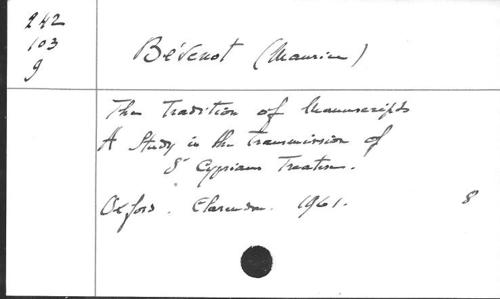 242
103
9
Bévenot (Maurice)
The Tradition of Manuscripts
A Study in the Transmission of
St Cyprians Treatises.
Oxford. Clarendon. 1961. 8